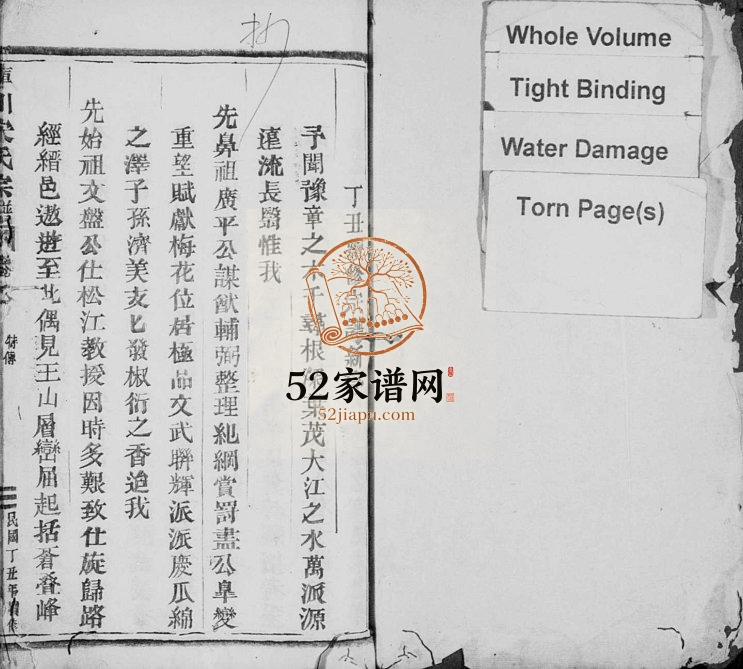 抄
丁丑
予聞豫章之木千尋根綿葉茂大江之水萬派源
遠流長翳惟我
先鼻祖廣平公謀猷輔弼整理紀綱賞罰盡公臯夔
重望賦獻梅花位居極品文武聯輝派派慶瓜綿
之澤子孫濟美支匕發椒衍之香迨我
先始祖文盤公仕松江教授因時多艱致仕旋歸路
經縉邑遨遊至此偶見王山層巒屈起括蒼叠峰
川宋氏宗譜
民國丁丑年
52家谱网
52jiapu.com
Whole Volume
Tight Binding
Water Damage
Torn Page(s)